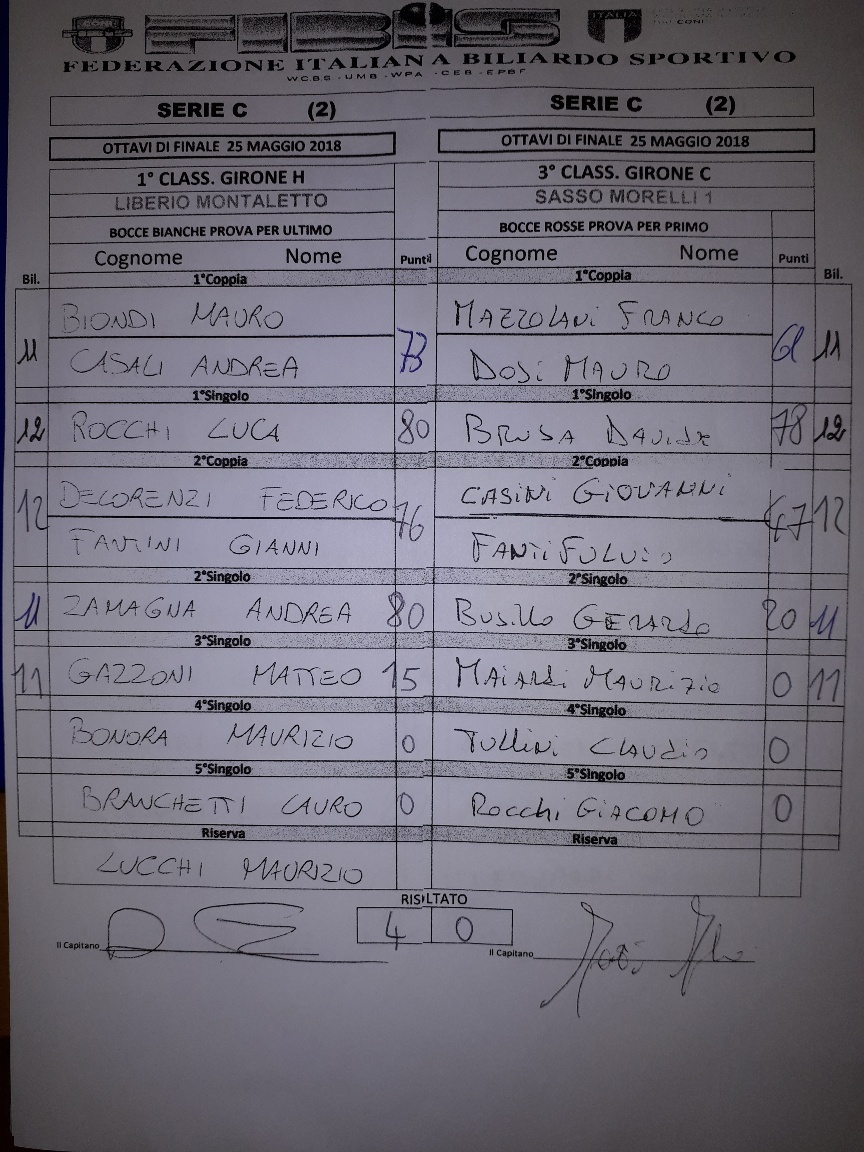 FIBIS
ITALIA
CONI
FEDERAZIONE ITALIANA BILIARDO SPORTIVO
WCBS - UMB - WPA - CEB - EPBF
SERIE C (2) SERIE C (2)
OTTAVI DI FINALE 25 MAGGIO 2018 OTTAVI DI FINALE 25 MAGGIO 2018
1° CLASS. GIRONE H 3° CLASS. GIRONE C
LIBERIO MONTALETTO SASSO MORELLI 1
BOCCE BIANCHE PROVA PER ULTIMO BOCCE ROSSE PROVA PER PRIMO
Cognome Nome Punti Cognome Nome Punti
Bil. 1°Coppia 1°Coppia Bil.
BIONDI MAURO MAZZOLANI FRANCO
11 73 61 11
CASALI ANDREA DOSI MAURO
1°Singolo 1°Singolo
12 ROCCHI LUCA 80 BRUSA DAVIDE 78 12
2°Coppia 2°Coppia
DELORENZI FEDERICO CASINI GIOVANNI
12 76 47 12
FANTINI GIANNI FANTI FULVIO
2°Singolo 2°Singolo
11 ZAMAGNA ANDREA 80 BUSILLO GERARDO 20 11
3°Singolo 3°Singolo
11 GAZZONI MATTEO 15 MAIARDI MAURIZIO 0 11
4°Singolo 4°Singolo
BONORA MAURIZIO 0 TULLINI CLAUDIO 0
5°Singolo 5°Singolo
BRANCHETTI LAURO 0 ROCCHI GIACOMO 0
Riserva Riserva
LUCCHI MAURIZIO
RISULTATO
4 0
Il Capitano Il Capitano